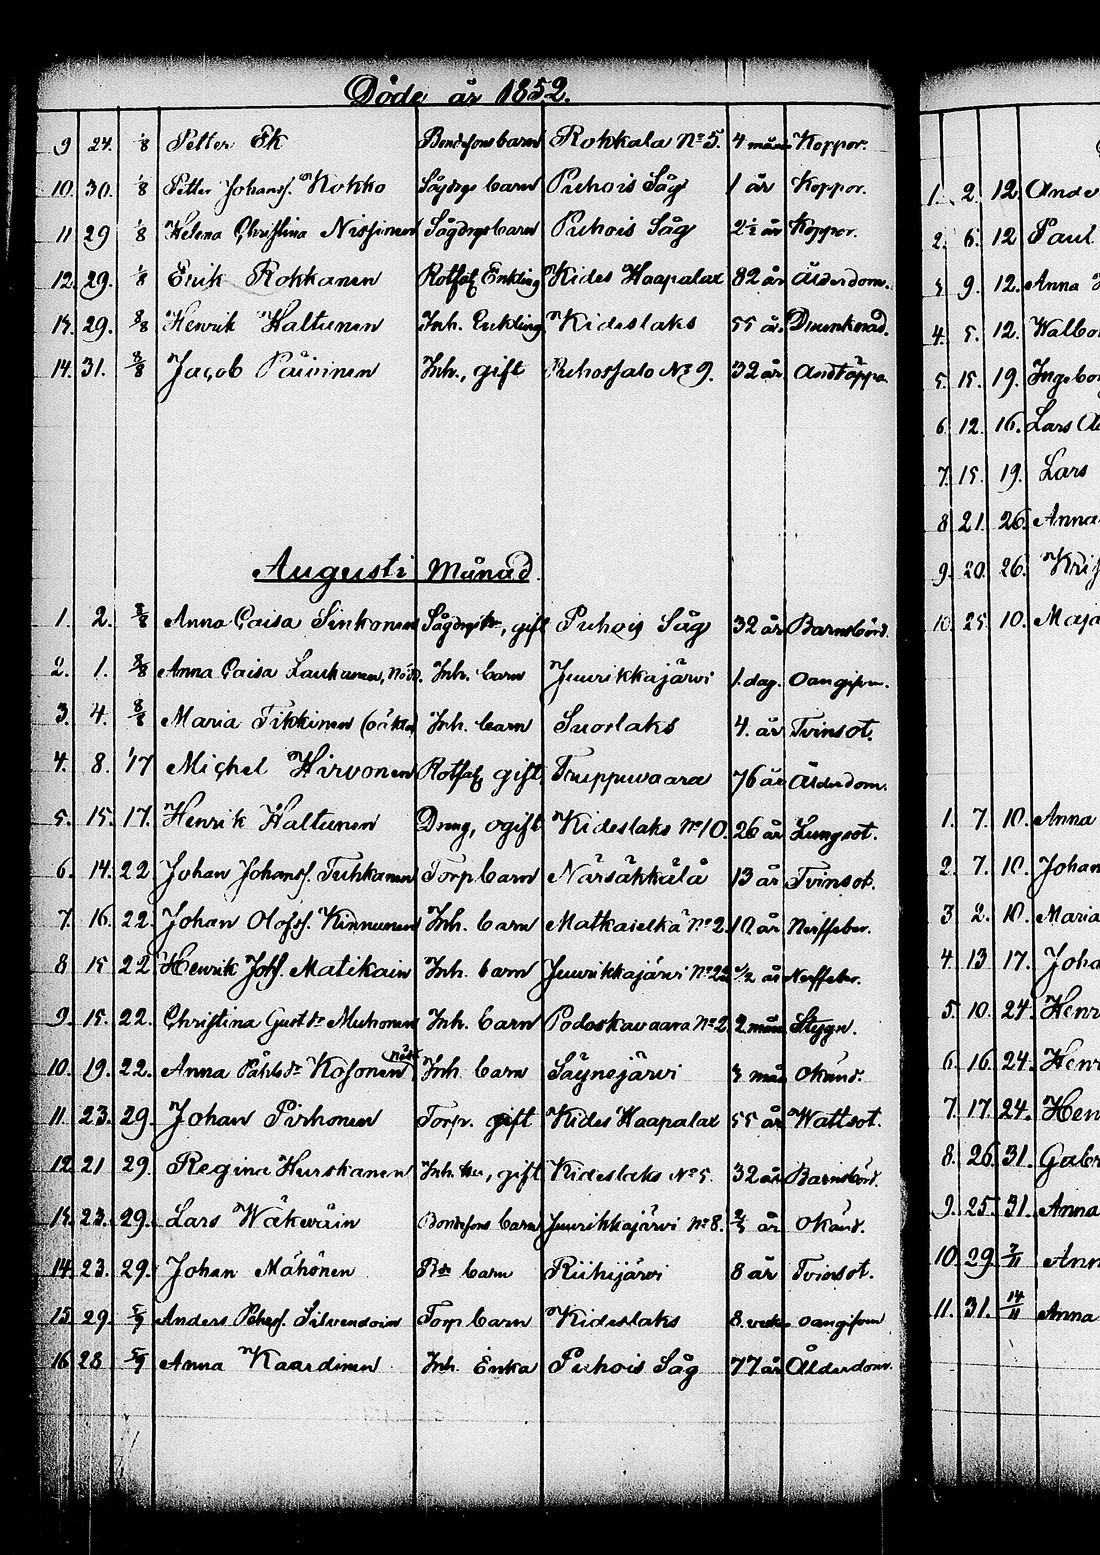 Döde år 1852.
9 24. 1/8 Petter Ek Bondesons barn Rokkala No 5. 4 mån Koppor.
10. 30. 1/8 Petter Johansf. Kokko Sågdrgs barn Puhois Såg 1 år Koppor.
11 29 1/8 Helena Christina Nissinen Sågdrgs barn Puhois Såg 2½ år Koppor.
12. 29. 1/8 Erik Rokkanen Rothj. Enkling Kides Haapalax 82 år Ålderdom.
13. 29. 8/8 Henrik Haltunen Inh. Enkling Kideslaks 55 år. Drunknad.
14. 31. 8/8 Jacob Päivinen Inh., gift Puhossalo No 9. 32 år Andtäppa
Augusti Månad.
1. 2. 8/8 Anna Caisa Sinkonen gift Puhois Såg 32 år Barnsbörd.
2. 1. 8/8 Anna Caisa Laukanen, Inh. barn Juurikkajärvi 1. dag. oangifven.
3. 4. 8/8 Maria Tikkinen Inh. barn Suorlaks 4. år Tvinsot.
4. 8. 17 Michel Hirvonen Rothj. gift Truppuvaara 76 år Ålderdom.
5. 15. 17. Henrik Haltunen Dreng, ogift Kideslaks No 10. 26 år Lungsot.
6. 14. 22 Johan Johansf. Tuhkanen Torp barn Närsäkkälä 13 år Tvinsot.
7. 16. 22. Johan Olofsf. Kinnunen Inh. barn Matkaselkä No 2. 10 år Nerffeber.
8 15 22 Henrik Johf. Matikain Inh. barn Juurikkajärvi No 22 1/2 år Nerffeber.
9. 15. 22. Christina Gustdr Muhonen Inh. barn Podoskavaara No 2 2 mån Stygn.
10. 19. 22. Anna Påhlsdr Kosonen Inh. barn Säynejärvi 3 mån okänd.
11. 23. 29. Johan Pirhonen Torp. gift Kides Haapalax 55 år Wattsot.
12 21 29. Regina Hurskanen Inh. hu, gift Kideslaks No 5. 32 år Barnsbörd.
13. 23. 29. Lars Wäkeväin Bondesons barn Juurikkajärvi No 8. år okänd.
14. 23. 29. Johan Mähönen Bde barn Riihijärvi 8 år Tvinsot.
15 29. 5/9 Anders Petersf. Silvendoin Torp barn Kideslaks 8. veckr oangifven
16 28 5/9 Anna Kaardinen Inh. Enka Puhois Såg 77 år Ålderdom.
1. 2. 12.
2. 6. 12 Paul
3 9. 12. Anna
4. 5. 12.
5. 15. 19.
6. 12. 16. Lars
7. 15. 19. Lars
8 21. 26.
9. 20. 26.
10. 25. 10.
1. 7. 10. Anna
2. 7. 10.
3 2. 10. Maria
4. 13 17.
5. 10. 24.
6. 16. 24.
7. 17 24.
8. 26 31.
9. 25. 31. Anna
10. 29
11. 31. 14/11 Anna